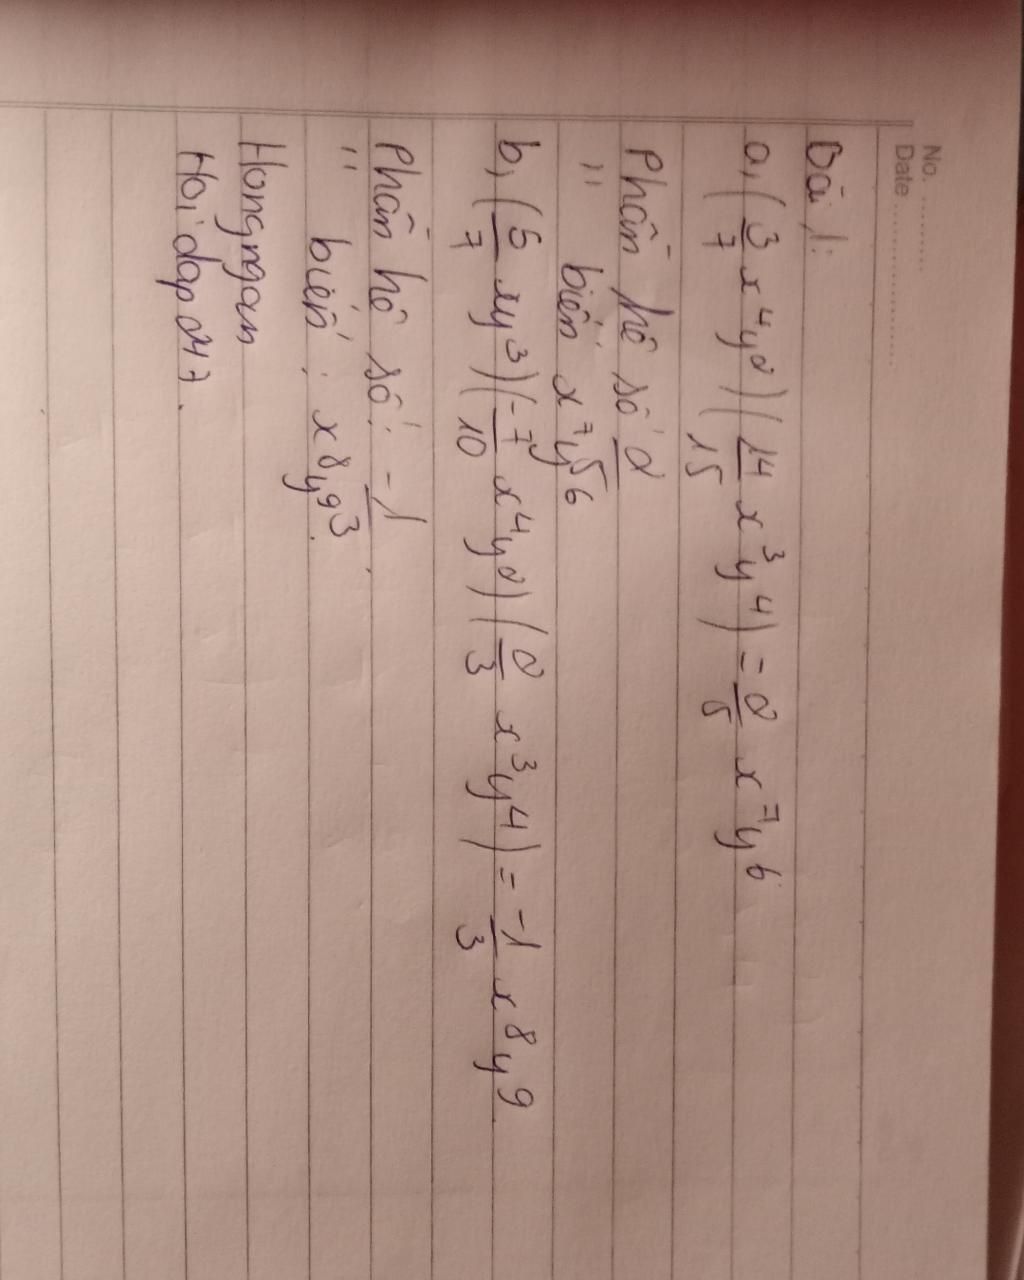 No. ..........
Date ....................
Bài 1:
a, (3/7 x⁴y²) (14/15 x³y⁴) = 2/5 x⁷y⁶
Phần hệ số 2/5
" biến x⁷y⁶
b, (5/7 xy³) (-7/10 x⁴y²) (2/3 x³y⁴) = -1/3 x⁸y⁹
Phần hệ số: -1/3
" biến : x⁸y⁹.
Hongngan
Hoidap247.